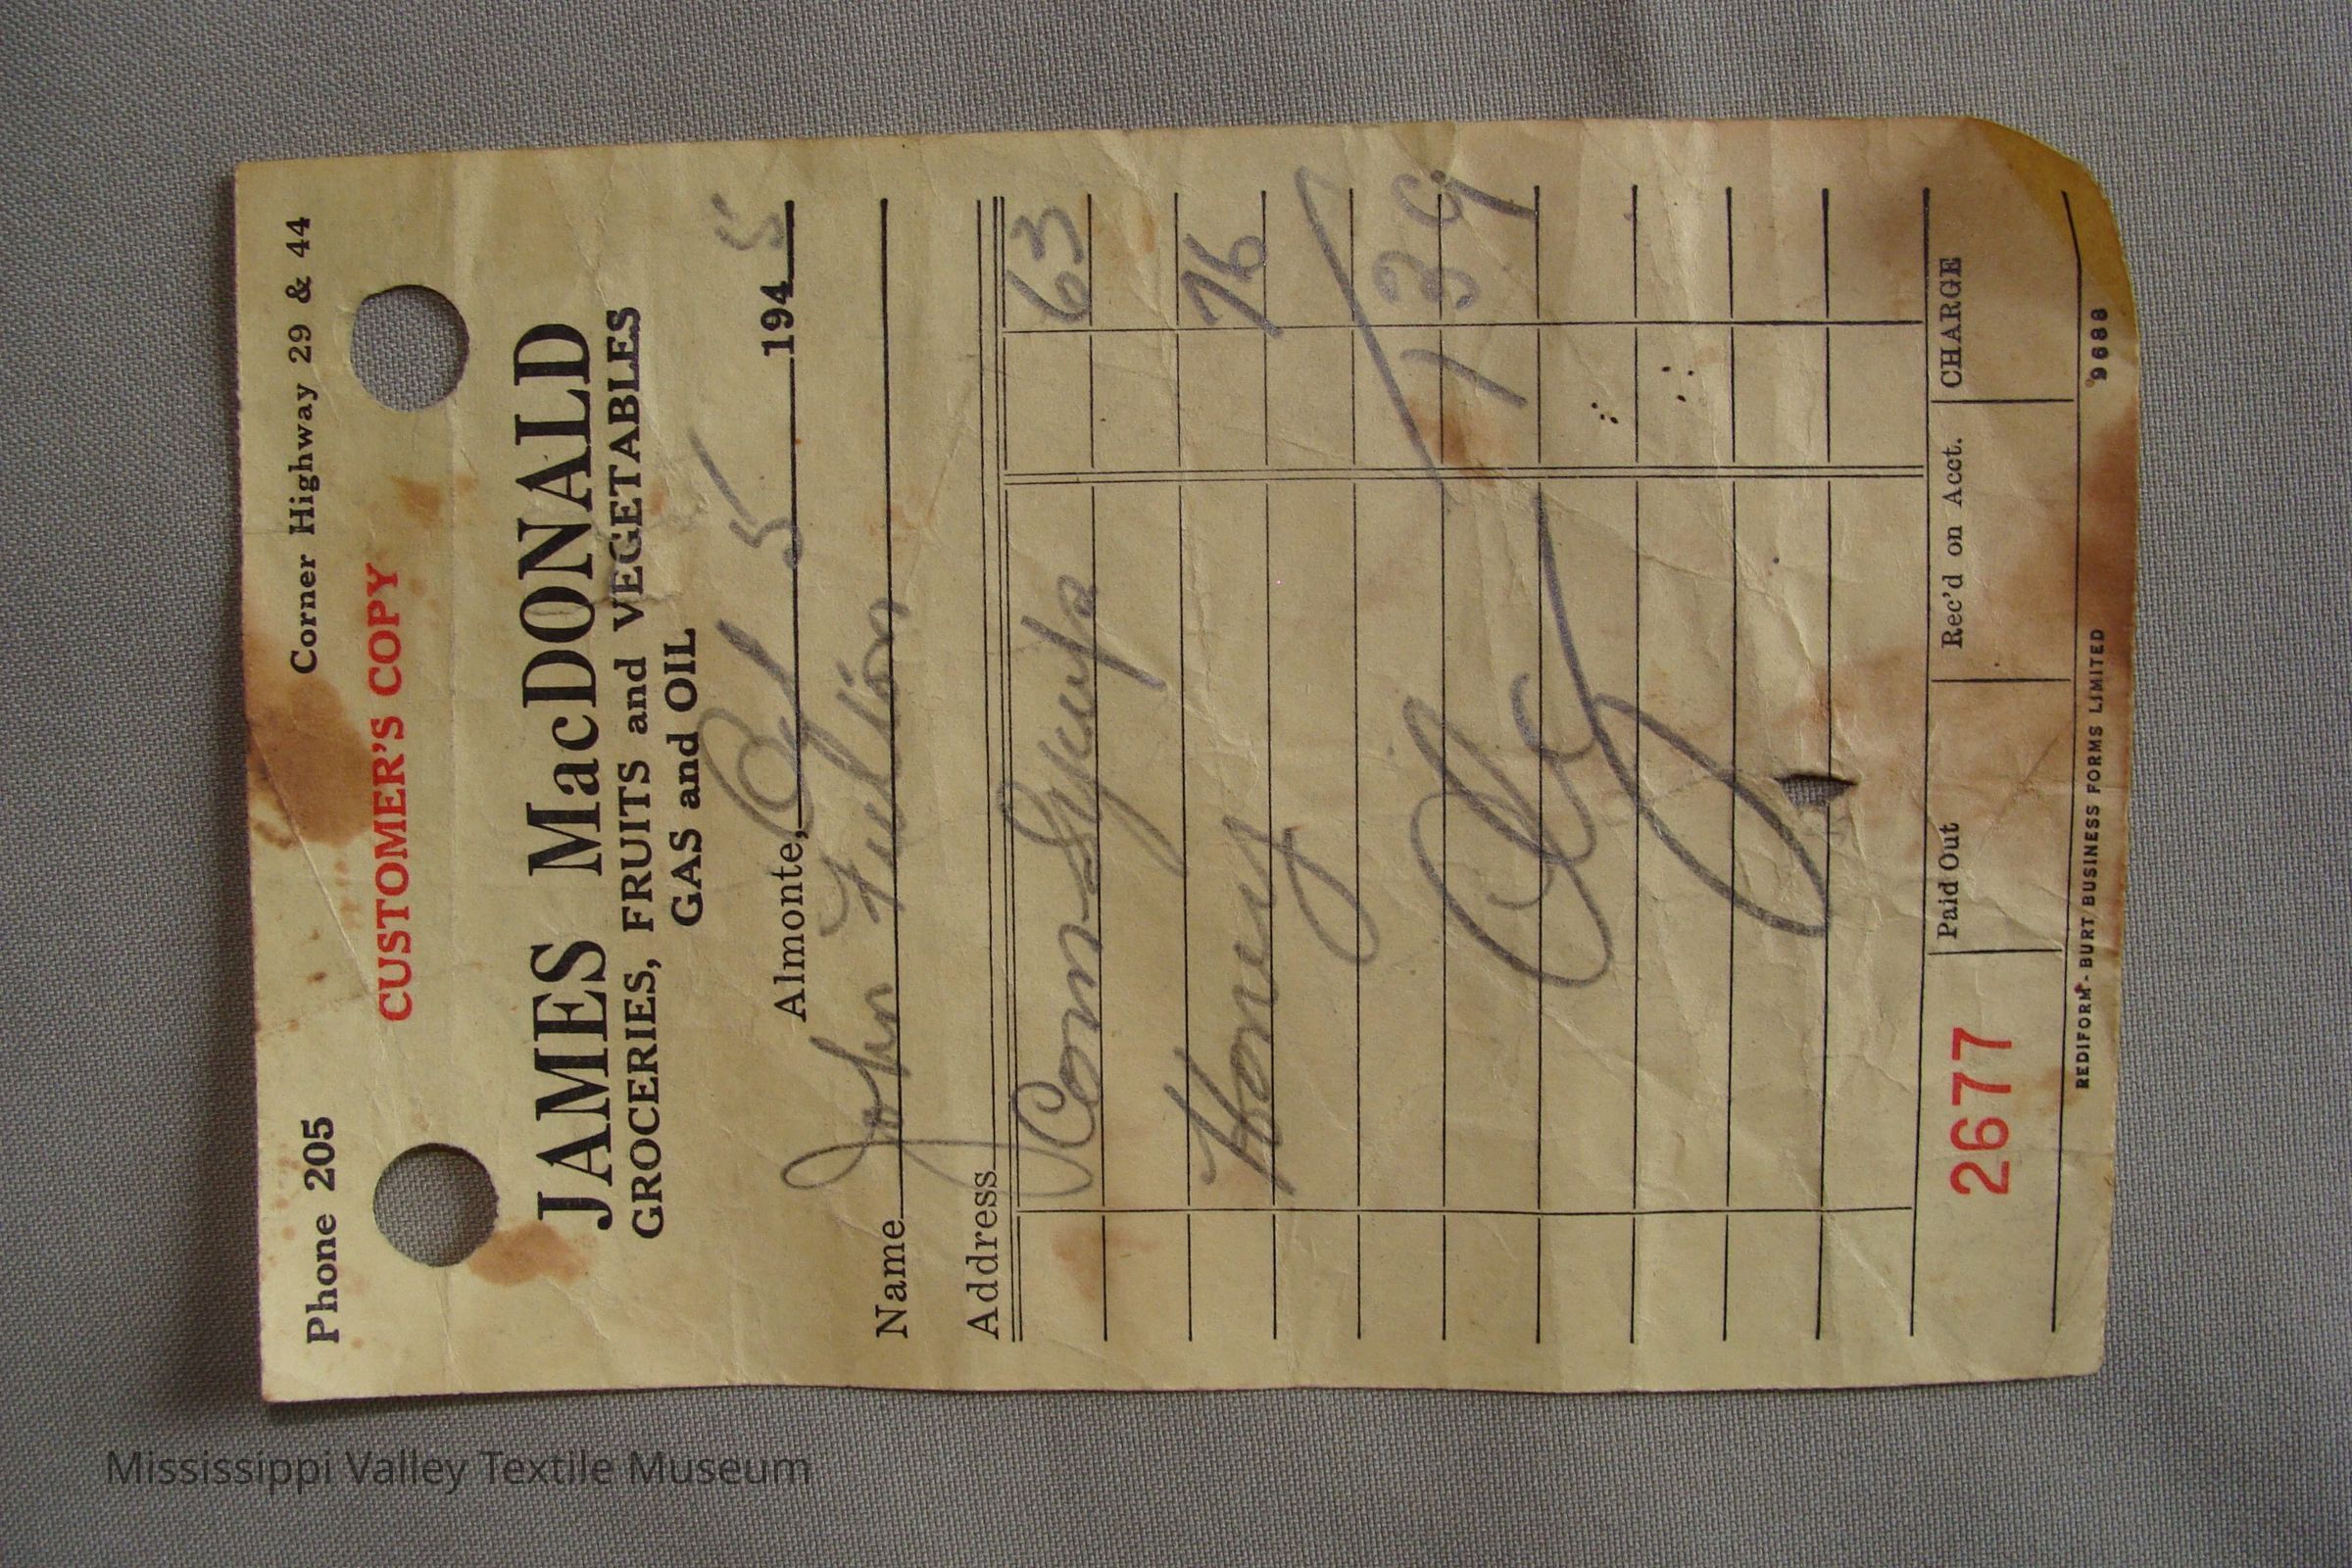 Phone 205 Corner Highway 29 & 44
CUSTOMER'S COPY
JAMES MacDONALD
GROCERIES, FRUITS and VEGETABLES
GAS and OIL
Almonte, 5 1945
Name John Fulton
Address
Corn Syrup 63
Honey 76
1 39
2677 Paid Out Rec'd on Acct. CHARGE
REDIFORM - BURT BUSINESS FORMS LIMITED 9688
Mississippi Valley Textile Museum